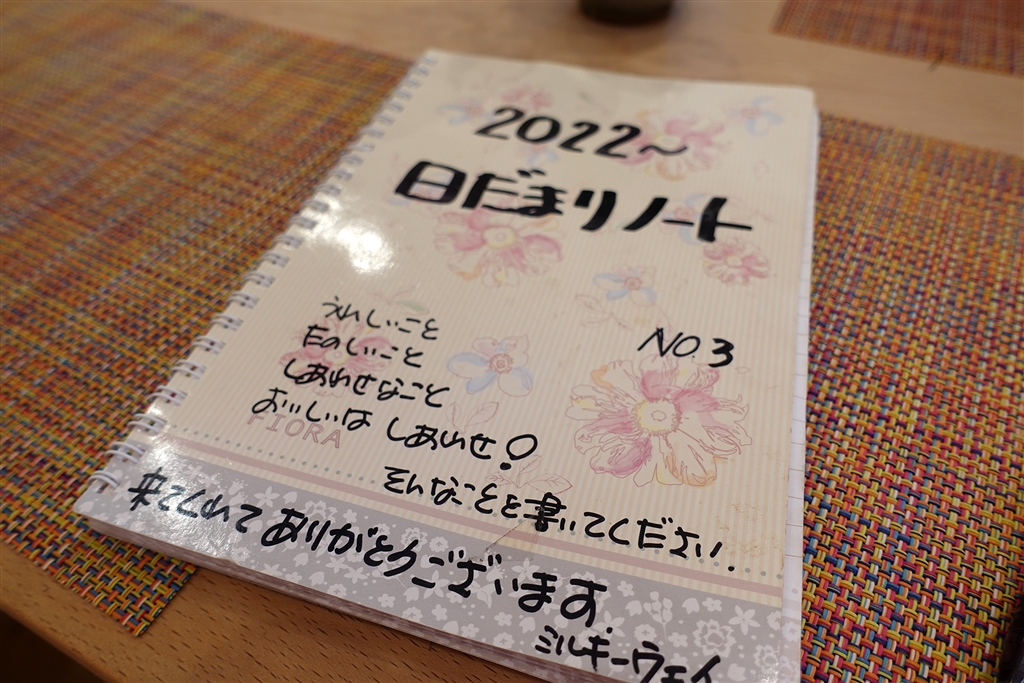 2022〜
日だまりノート
NO.3
うれしいこと
たのしいこと
しあわせなこと
おいしいは しあわせ!
FIORA
そんなことを書いてください.
来てくれて ありがとうございます.
ミルキーウェイ